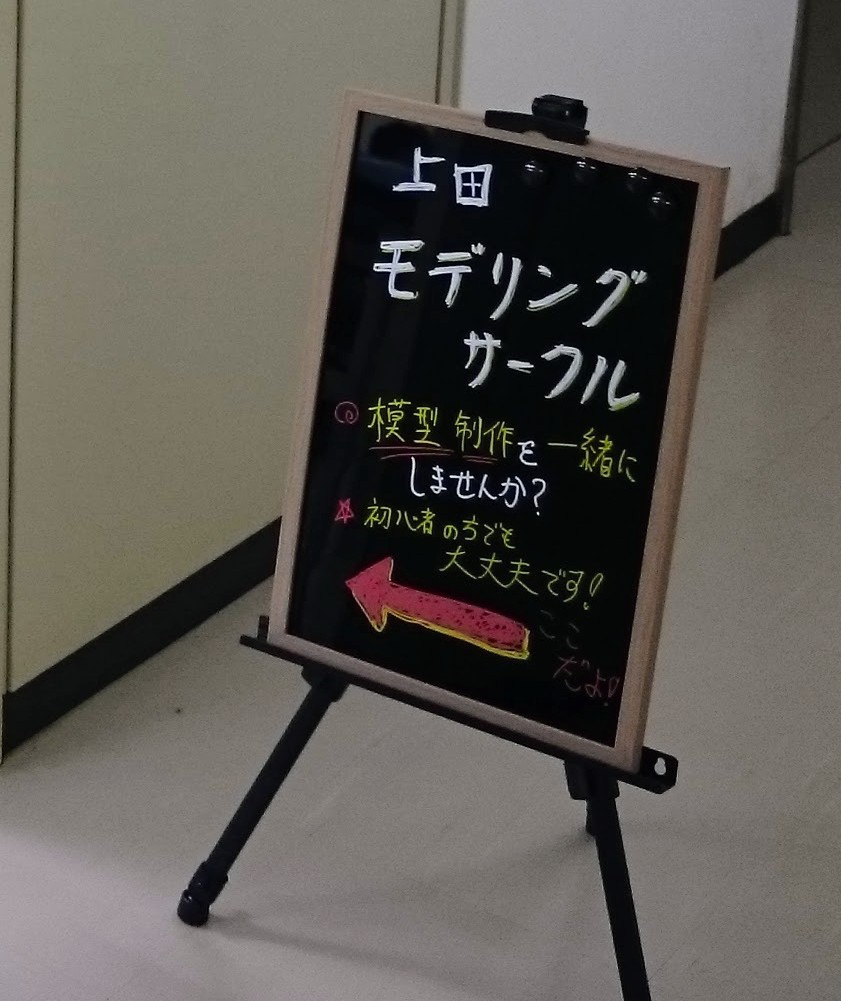 上田
モデリング
サークル
◎ 模型制作を一緒に
しませんか?
☆ 初心者の方でも
大丈夫です!
ここ
だよ!